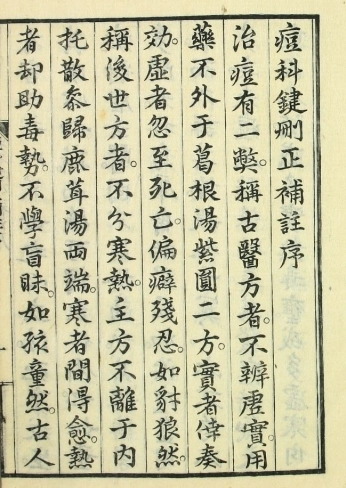 痘科鍵刪正補註序
治痘有二弊稱古醫方者。不辨虛實。用
藥不外于葛根湯紫圓二方。實者倖奏
効。虛者忽至死亡。偏癖殘忍。如豺狼然。
稱後世方者。不分寒熱。主方不離于內
托散參歸鹿茸湯兩端。寒者間得愈。熱
者却助毒勢。不學盲昧。如孩童然。古人